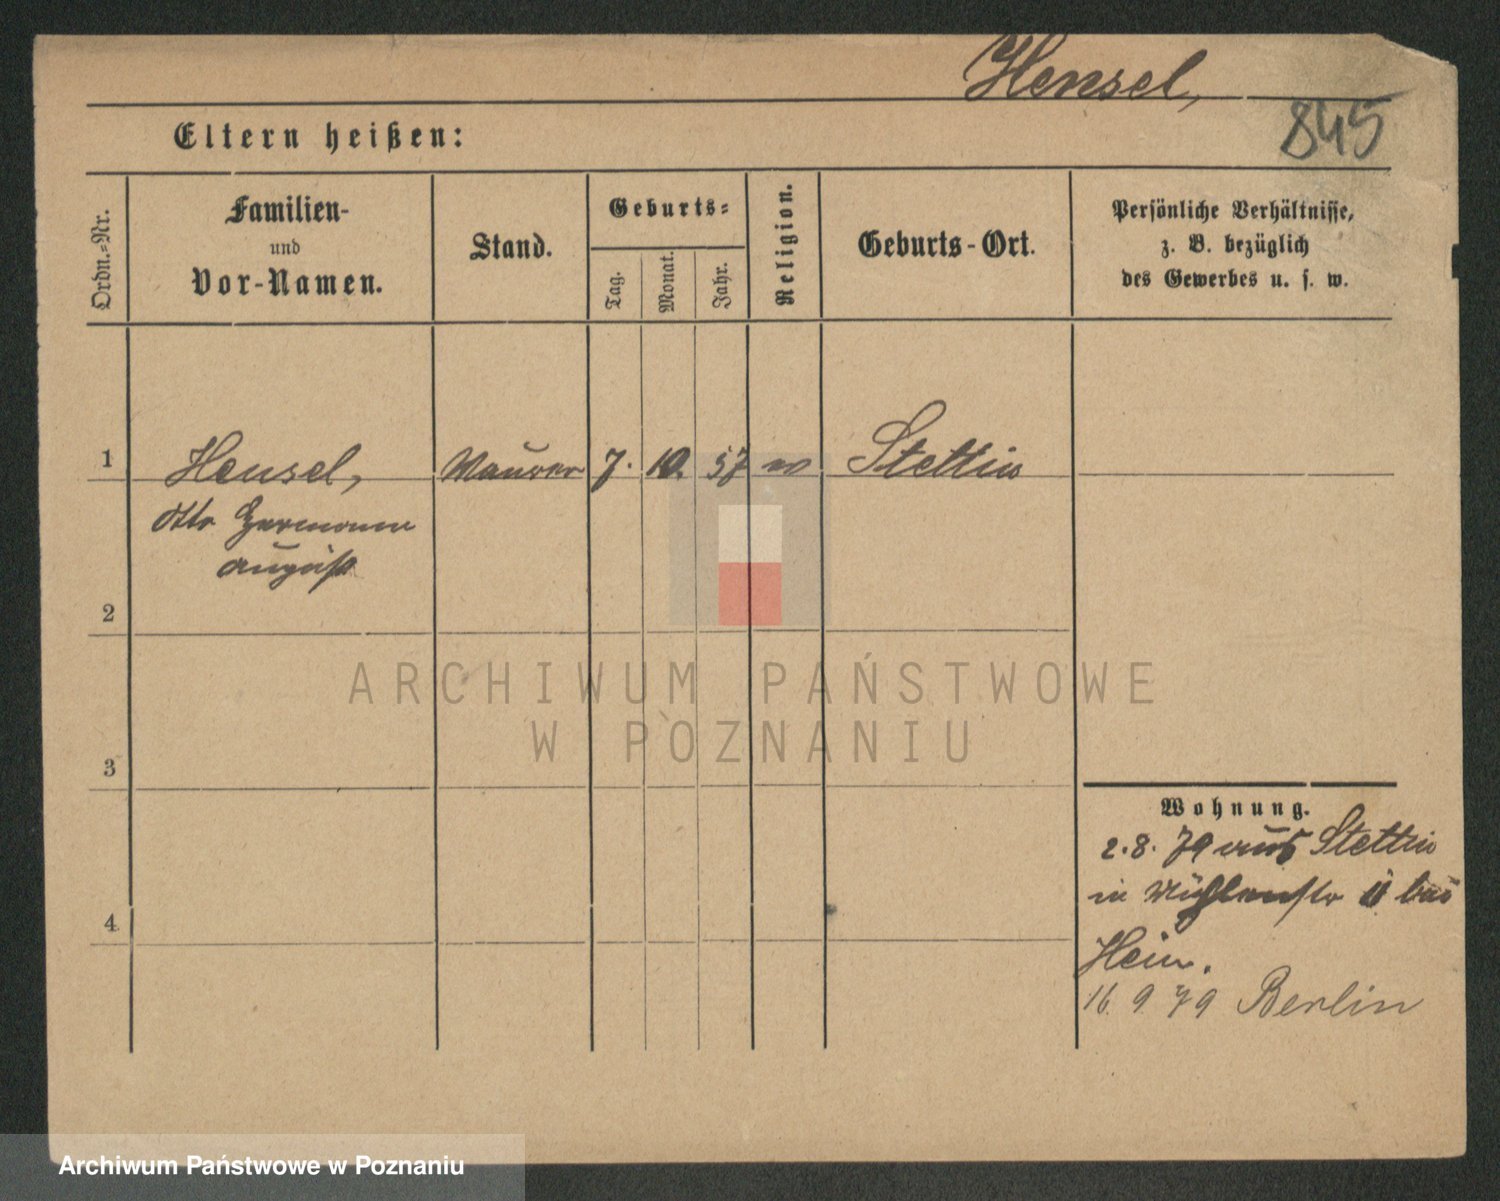 Hensel,
845
Eltern heißen:
Ordn.-Nr.
Familien-
und
Vor-Namen.
Stand.
Geburts-
Tag.
Monat.
Jahr.
Religion.
Geburts-Ort.
Persönliche Verhältnisse,
z. B. bezüglich
des Gewerbes u. s. w.
1 Hensel, Maurer 7. 10. 57 ev Stettin
Otto Hermann
August
2
3
4
Wohnung.
2.8.79 aus Stettin
in Mühlenstr 11 bei
Hein.
16. 9. 79 Berlin
ARCHIWUM PAŃSTWOWE
W POZNANIU
Archiwum Państwowe w Poznaniu